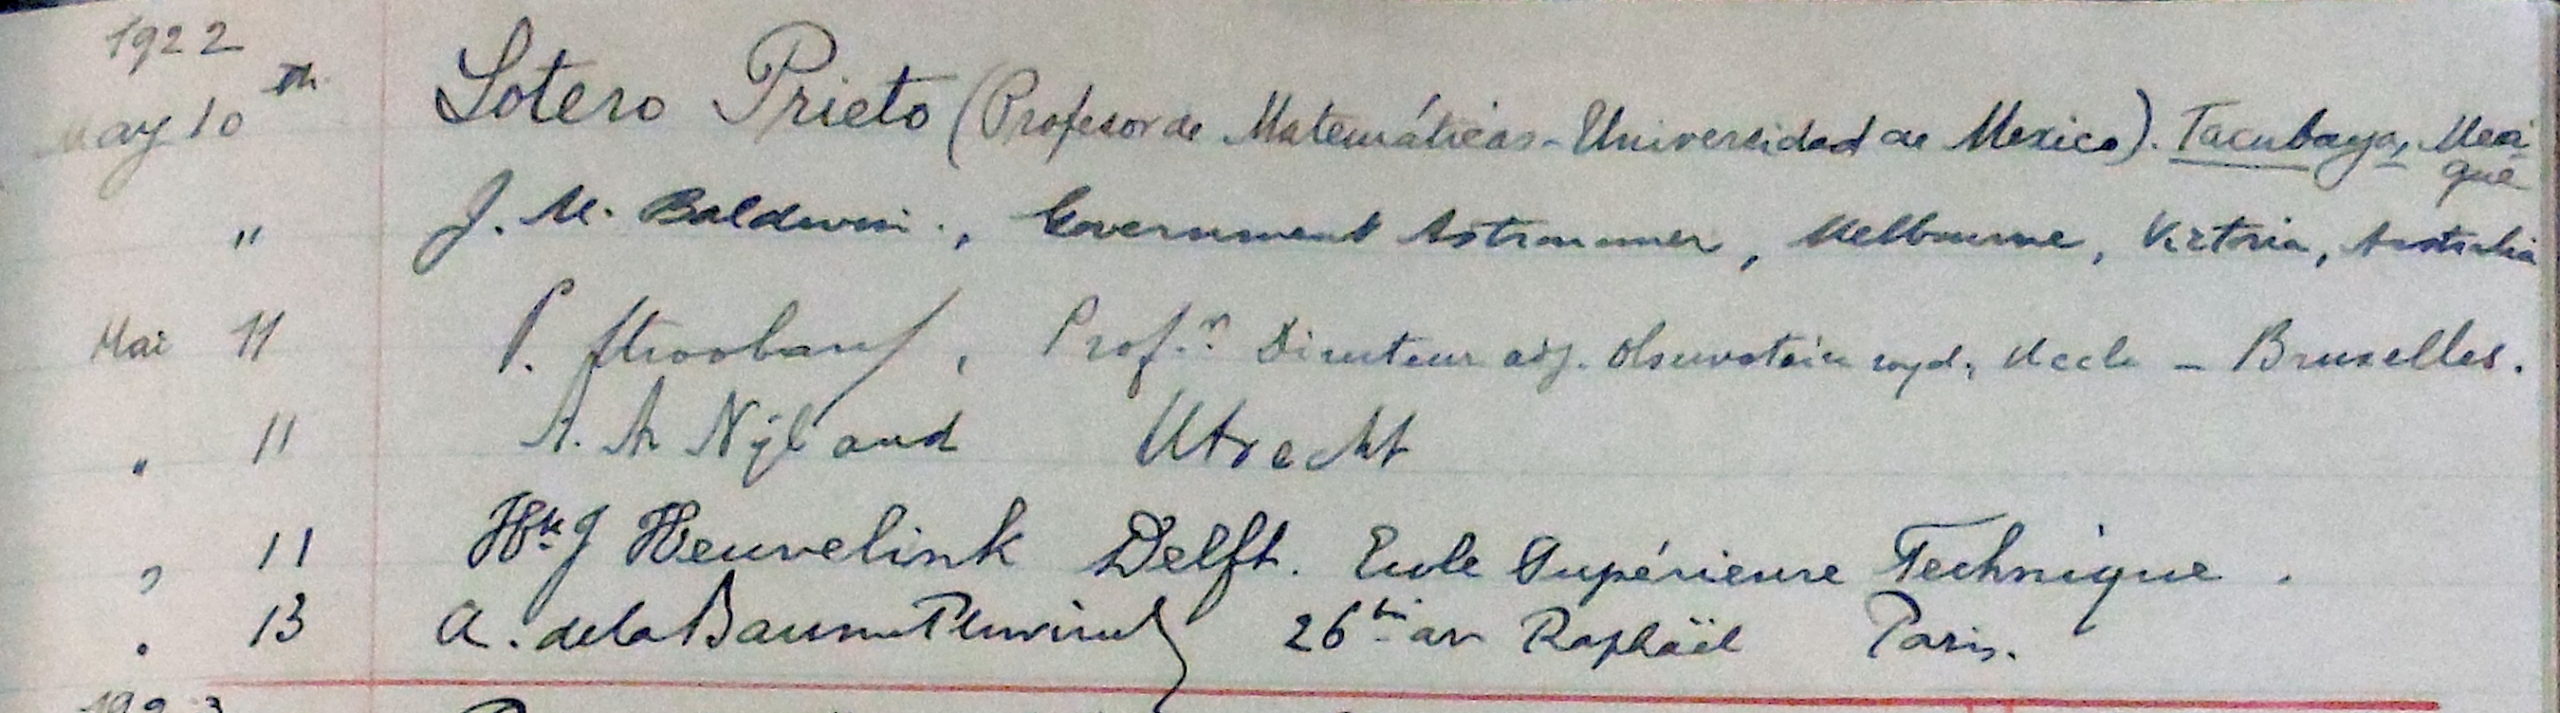 1922
May 10th Sotero Prieto (Profesor de Matemáticas - Universidad de Mexico). Tacubaya, Mexi-
que
" J. M. Baldwin., Government Astronomer, Melbourne, Victoria, Australia
Mai 11 P. Stroobant, Prof.r Directeur adj. Observatoire royal, Uccle - Bruxelles.
" 11 A. A. Nijland Utrecht
" 11 Hk J Heuvelink Delft. Ecole Supérieure Technique.
" 13 A. de la Baume Pluvinel 26bis av Raphaël Paris.
1923